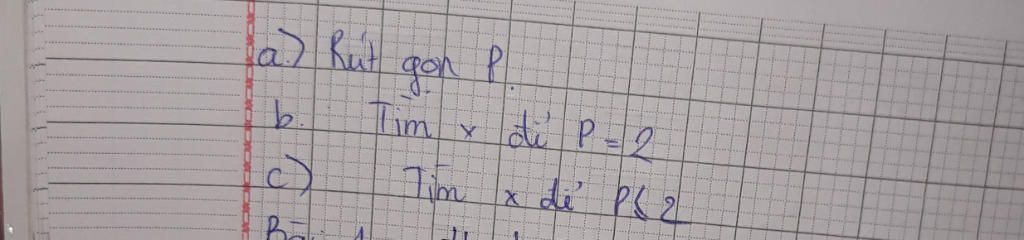 a.) Rút gọn P.
b. Tìm x để P = 2
c) Tìm x để P < 2